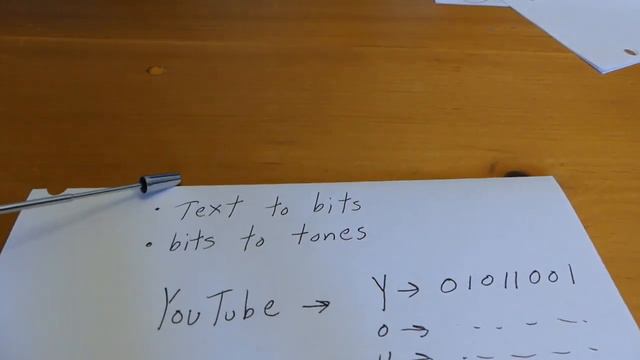 • Text to bits
• bits to tones
YouTube → Y → 01011001
o → -- -- -- --
u →